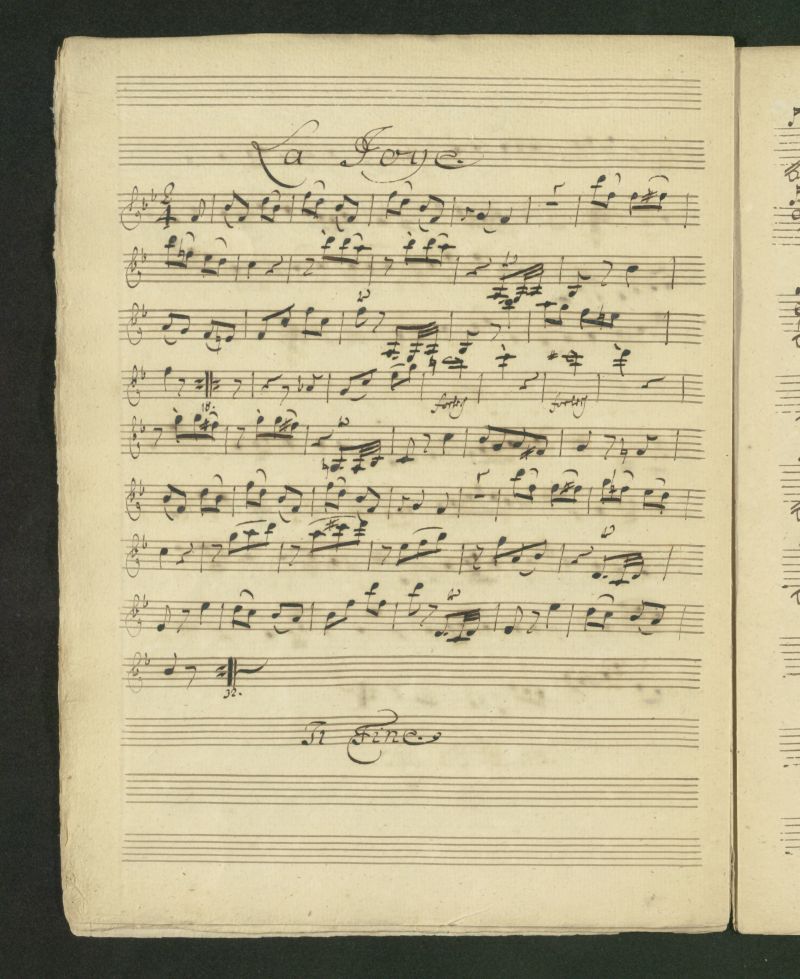 La Joye.
2
4
18.
fortis
fortis
32.
Il Fine.